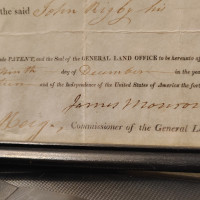 the said John Rigby his
PATENT, and the Seal of the GENERAL LAND OFFICE to be hereunto
day of December in the
and of the Independence of the United States of America the fort
James Monro
Commissioner of the General L